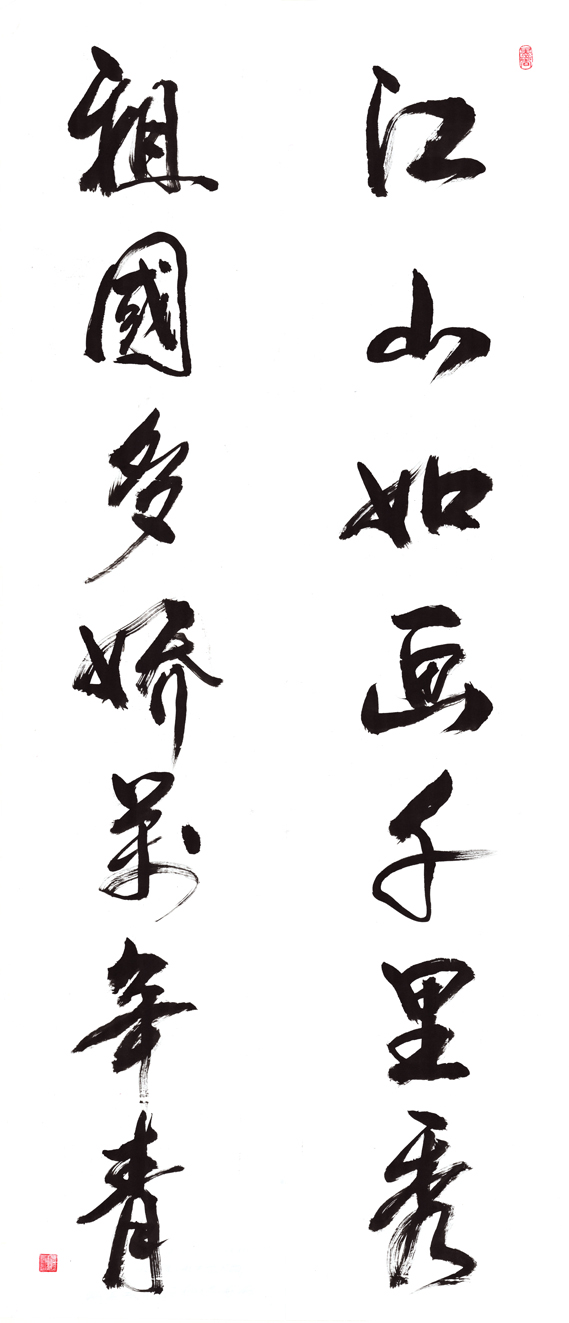 江山如画千里秀
祖國多娇萬年青